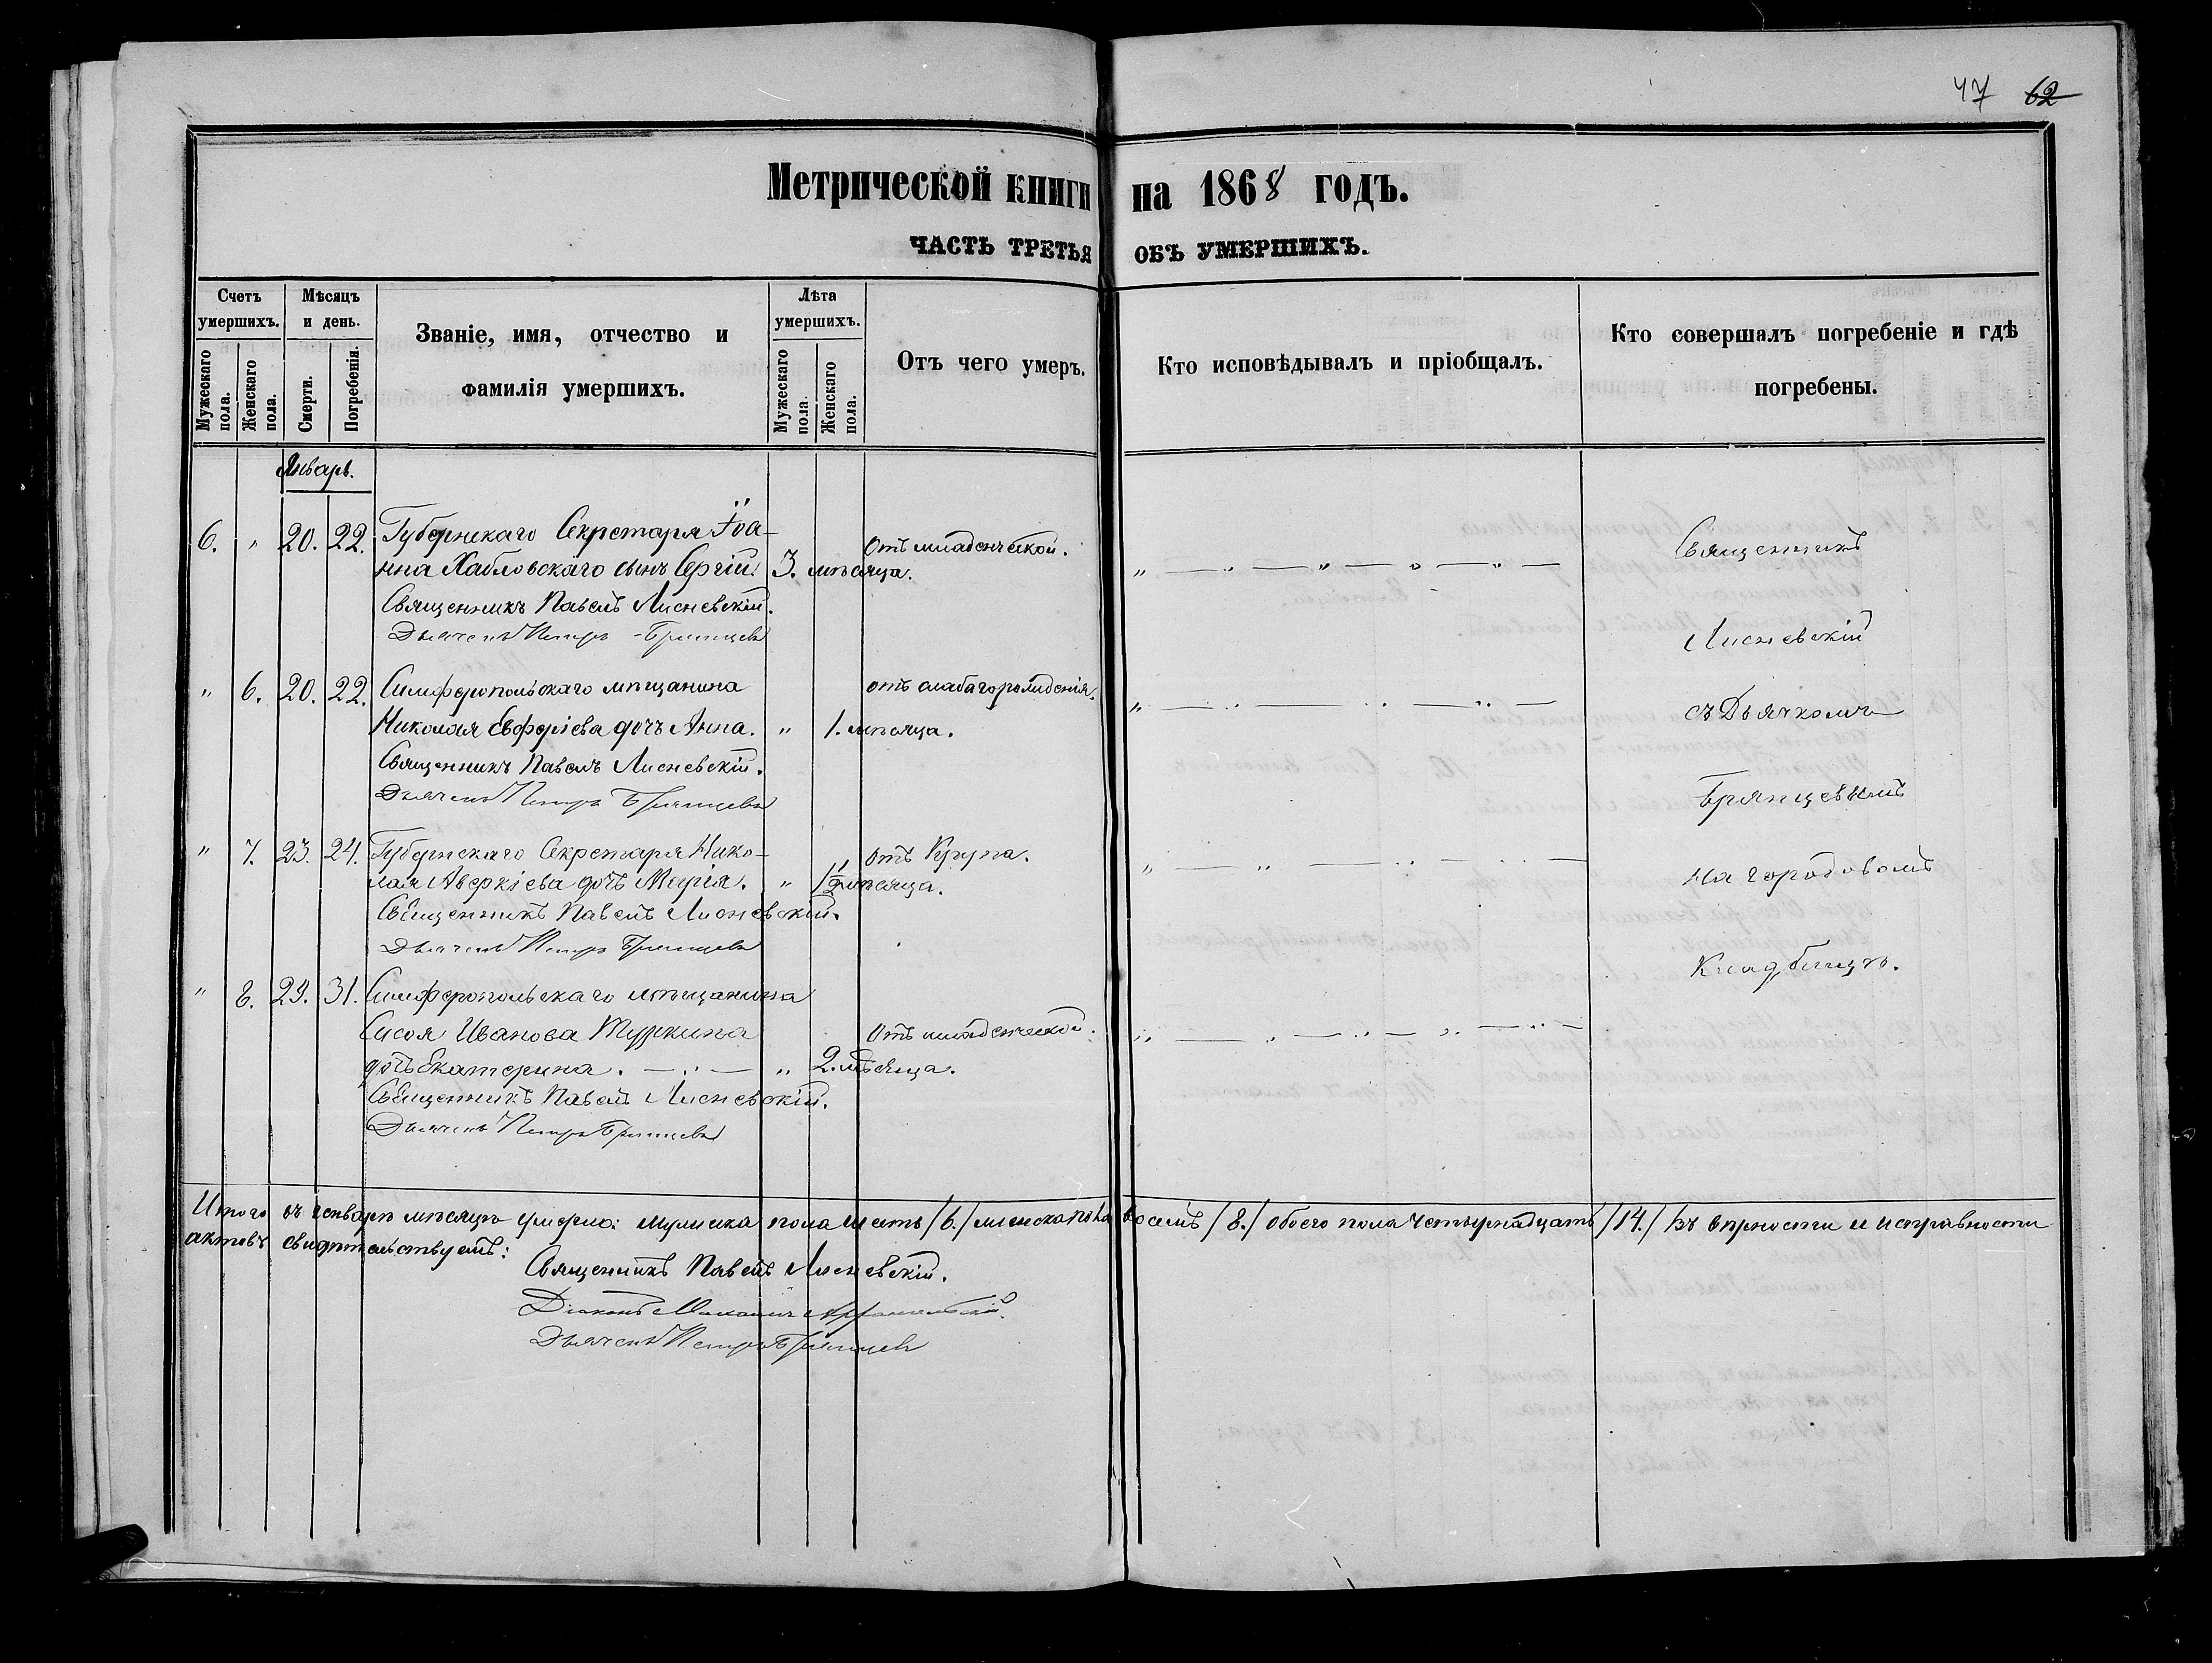 47 62
Метрической книги на 1868 годъ.
ЧАСТЬ ТРЕТЬЯ ОБЪ УМЕРШИХЪ.
Счетъ умершихъ.
Мужескаго пола.
Женскаго пола.
Мѣсяцъ и день.
Смерти.
Погребенія.
Званіе, имя, отчество и
фамилія умершихъ.
Лѣта умершихъ.
Мужескаго пола.
Женскаго пола.
Отъ чего умеръ.
Кто исповѣдывалъ и пріобщалъ.
Кто совершалъ погребеніе и гдѣ
погребены.
Январь.
6. " 20. 22. Губернскаго Секретаря Іоа- Отъ младенческой.
нна Хабловскаго сынъ Сергій. 3. мѣсяца.
Священникъ Павелъ Лисневскій.
Дьячекъ Петръ Брянцевъ
" 6. 20. 22. Симферопольскаго мѣщанина отъ слабаго рожденія.
Николая Евферіева дочь Анна. " 1. мѣсяца.
Священникъ Павелъ Лисневскій.
Дьячекъ Петръ Брянцевъ
" 7. 23. 24. Губернскаго Секретаря Нико- отъ Крупа.
лая Аверкіева дочь Марія. " 1½ мѣсяца.
Священникъ Павелъ Лисневскій.
Дьячекъ Петръ Брянцевъ
" 8. 29. 31. Симферопольскаго мѣщанина
Сисоя Иванова Туркина Отъ младенческой.
дочь Екатерина. " 2. мѣсяца.
Священникъ Павелъ Лисневскій.
Дьячекъ Петръ Брянцевъ
Священникъ
Лисневскій
съ Дьячкомъ
Брянцевымъ
на городовомъ
Кладбищѣ.
Итого въ генварѣ мѣсяцѣ умерло: мужеска пола шесть /6./ женска пола восемь /8./ обоего пола четырнадцать /14./ Въ вѣрности и исправности
актовъ свидѣтельствуемъ:
Священникъ Павелъ Лисневскій.
Діаконъ Михаилъ
Дьячекъ Петръ Брянцевъ